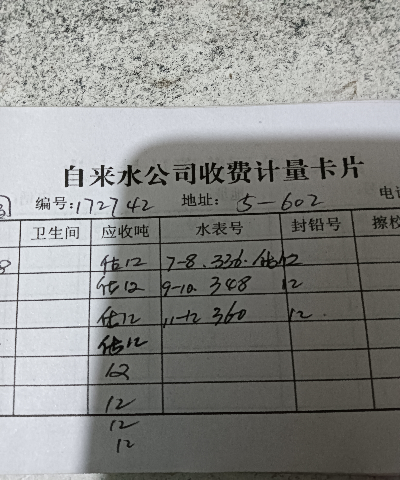 自来水公司收费计量卡片
编号:172742 地址: 5-602 电话
卫生间 应收吨 水表号 封铅号 擦校
8 估12 7-8. 336. 估12
估12 9-10. 348 12
估12 11-12 360 12.
估12
12
12
12
12